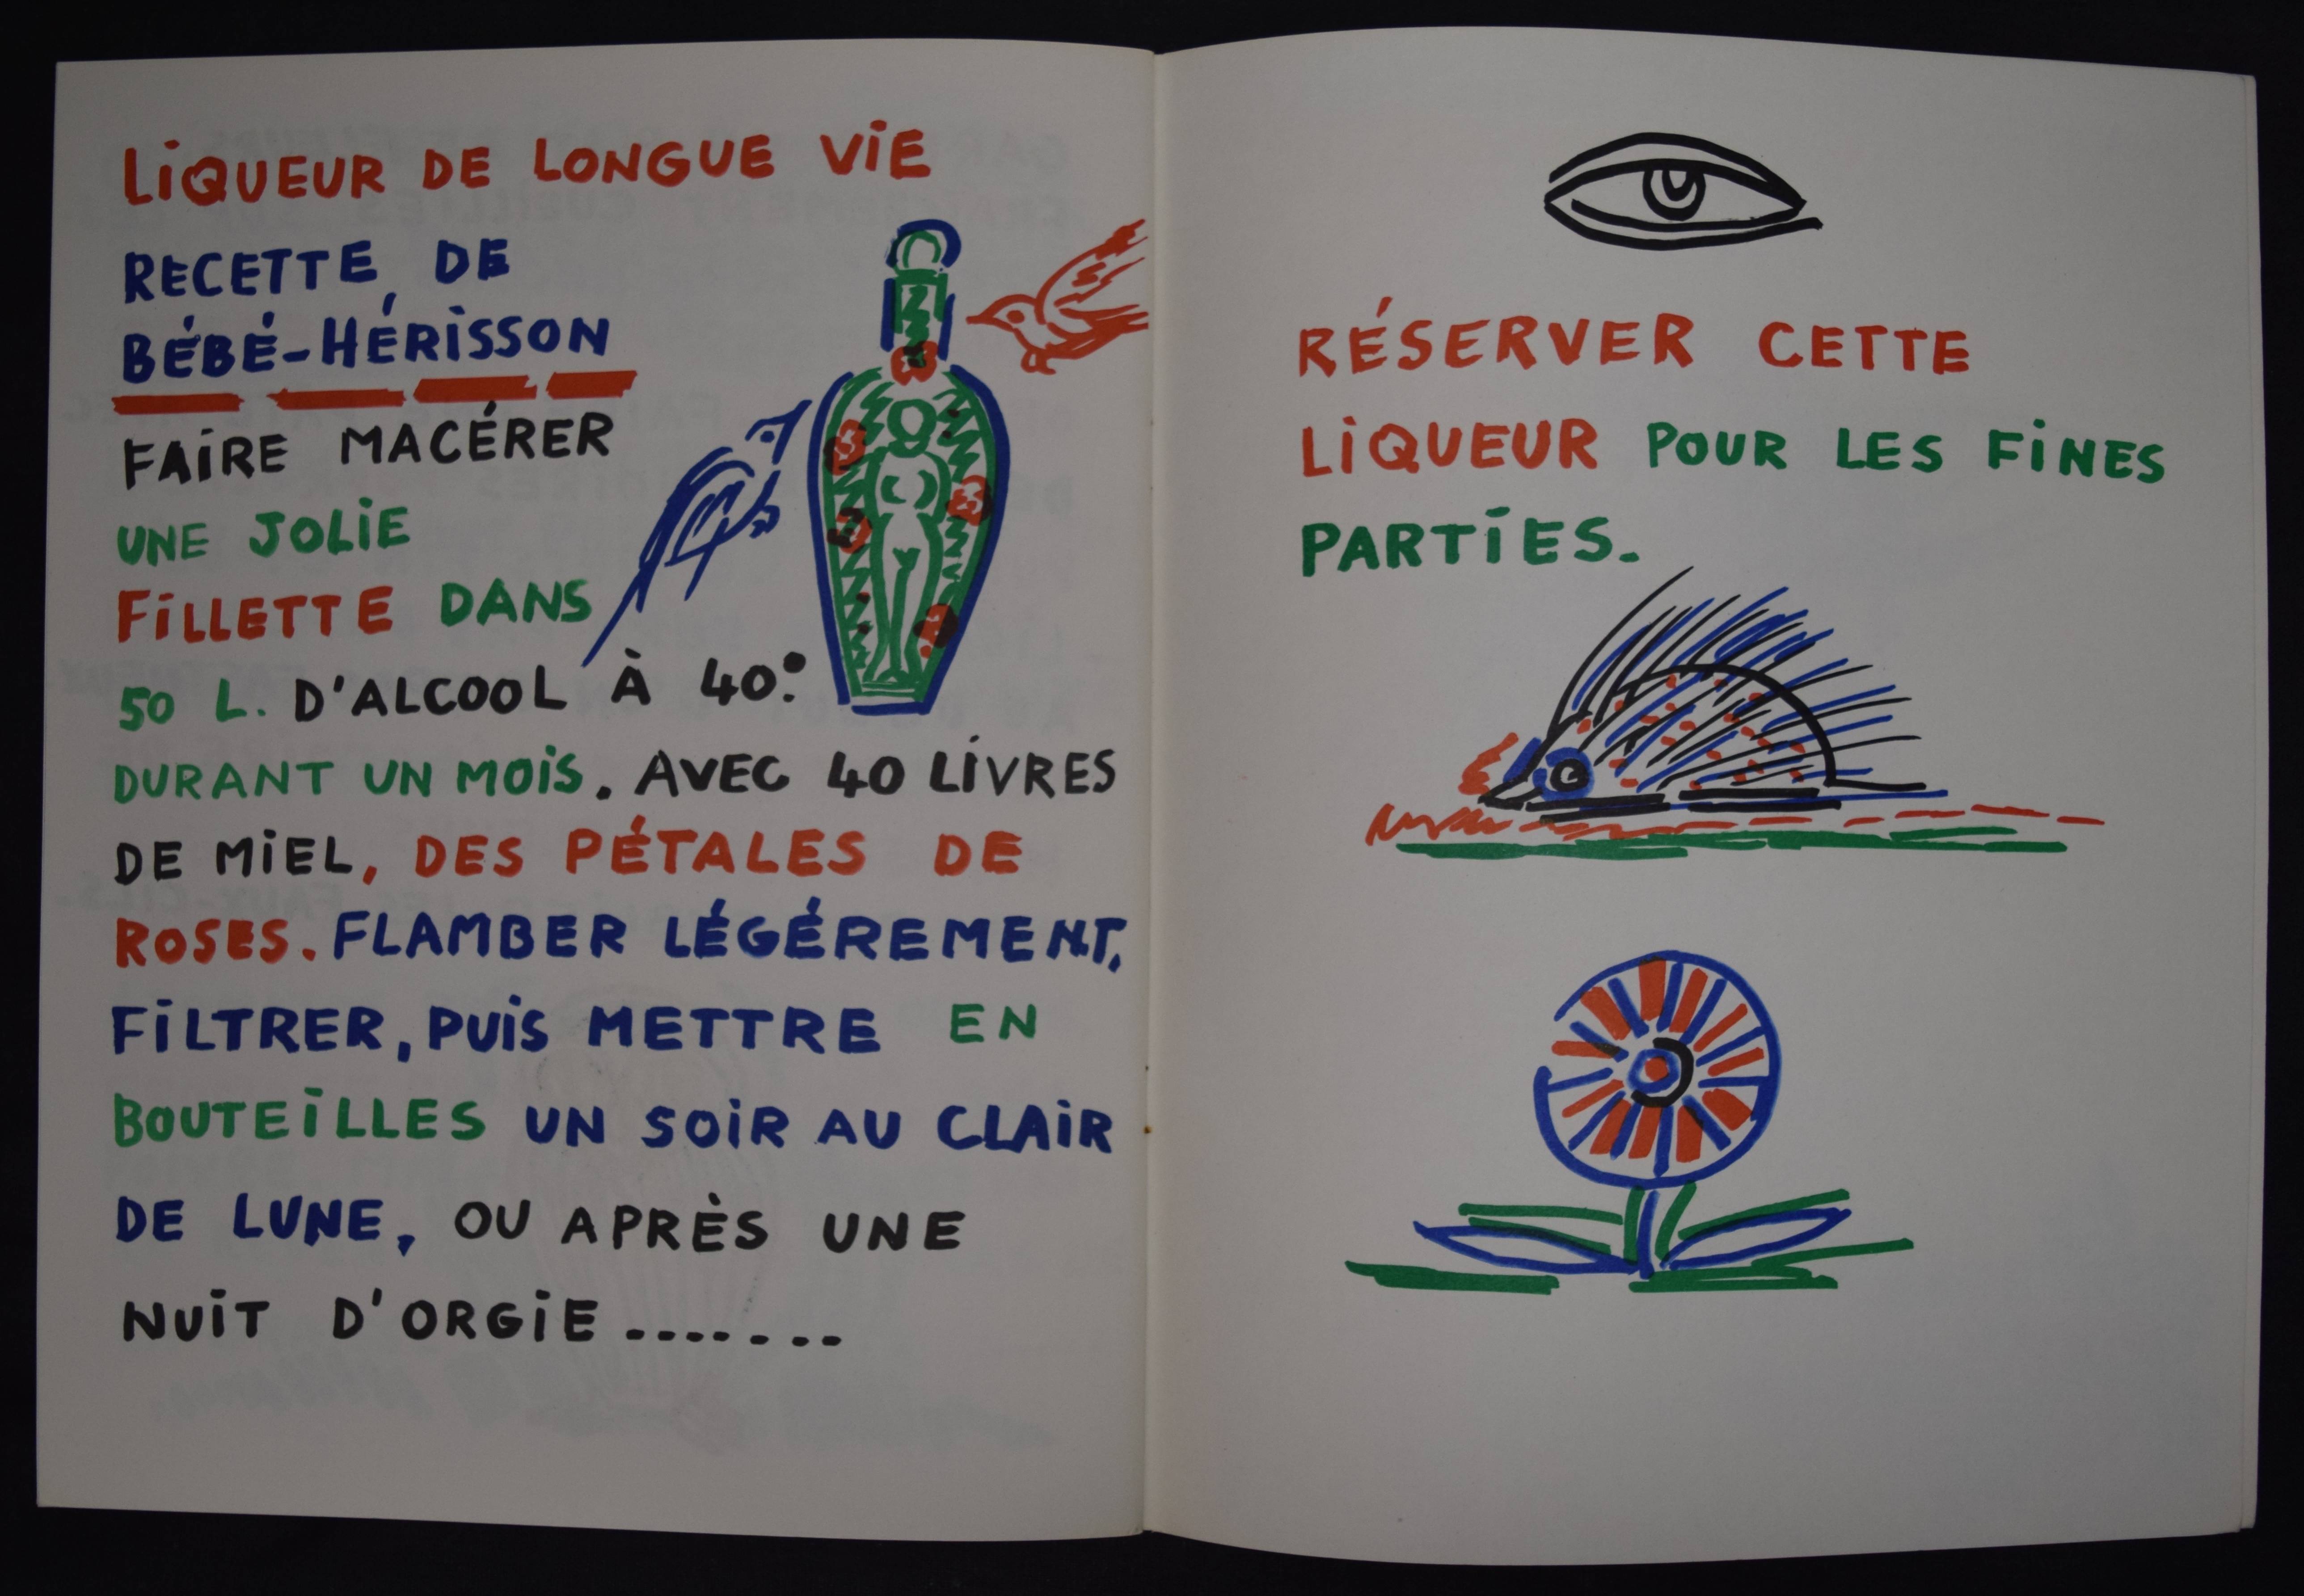 LiQUEUR DE LONGUE ViE
RECETTE DE
BÉBÉ-HÉRiSSON
FAiRE MACÉRER
UNE JOLiE
FiLLETTE DANS
50 L. D'ALCOOL À 40°.
DURANT UN MOiS. AVEC 40 LiVRES
DE MiEL, DES PÉTALES DE
ROSES. FLAMBER LÉGÉREMENT,
FiLTRER, PUiS METTRE EN
BOUTEiLLES UN SOiR AU CLAiR
DE LUNE, OU APRÈS UNE
NUiT D'ORGiE........
RÉSERVER CETTE
LiQUEUR POUR LES FiNES
PARTiES.